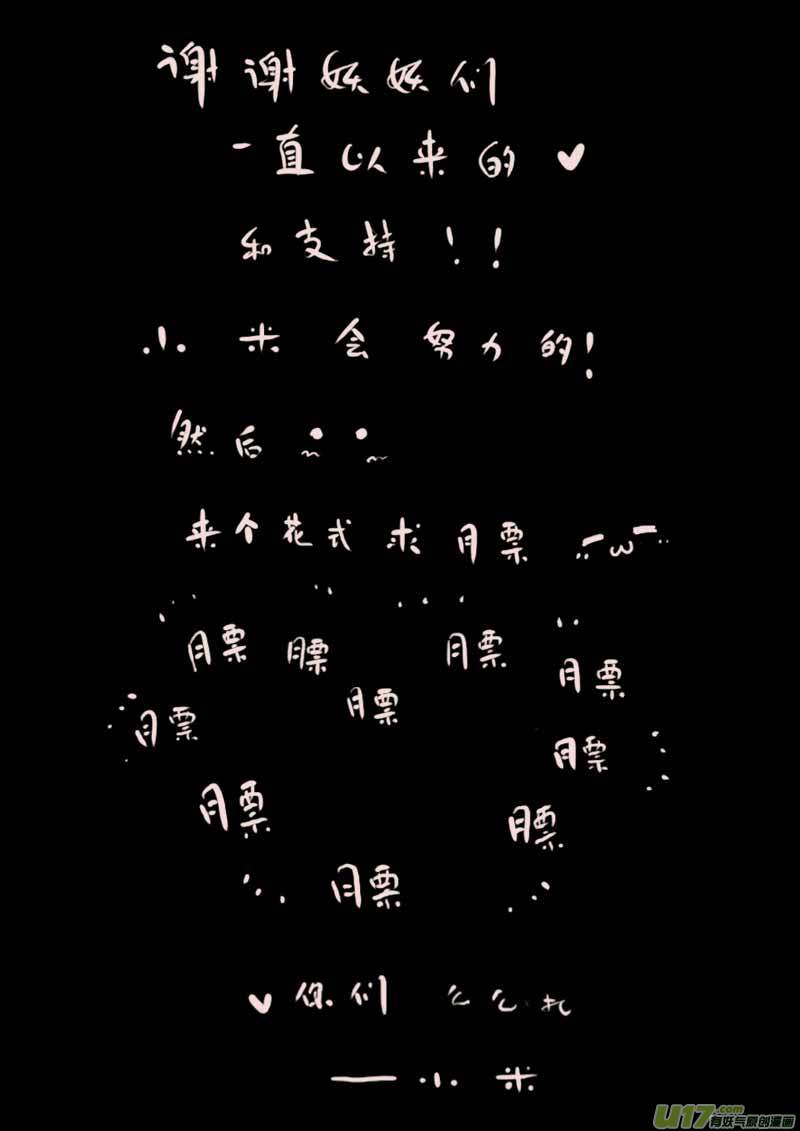 谢谢妖妖们
一直以来的♥
和支持！！
小米会努力的！
然后
来个花式求月票 ..-ω-..
月票 月票 月票
月票
月票
月票
月票
月票
月票
月票
♥你们 么么扎
——小米
U17.COM
有妖气原创漫画